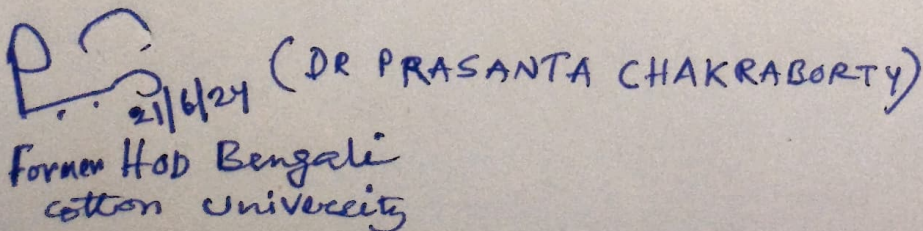 (DR PRASANTA CHAKRABORTY)
21/6/24
Former HOD Bengali
Cotton University